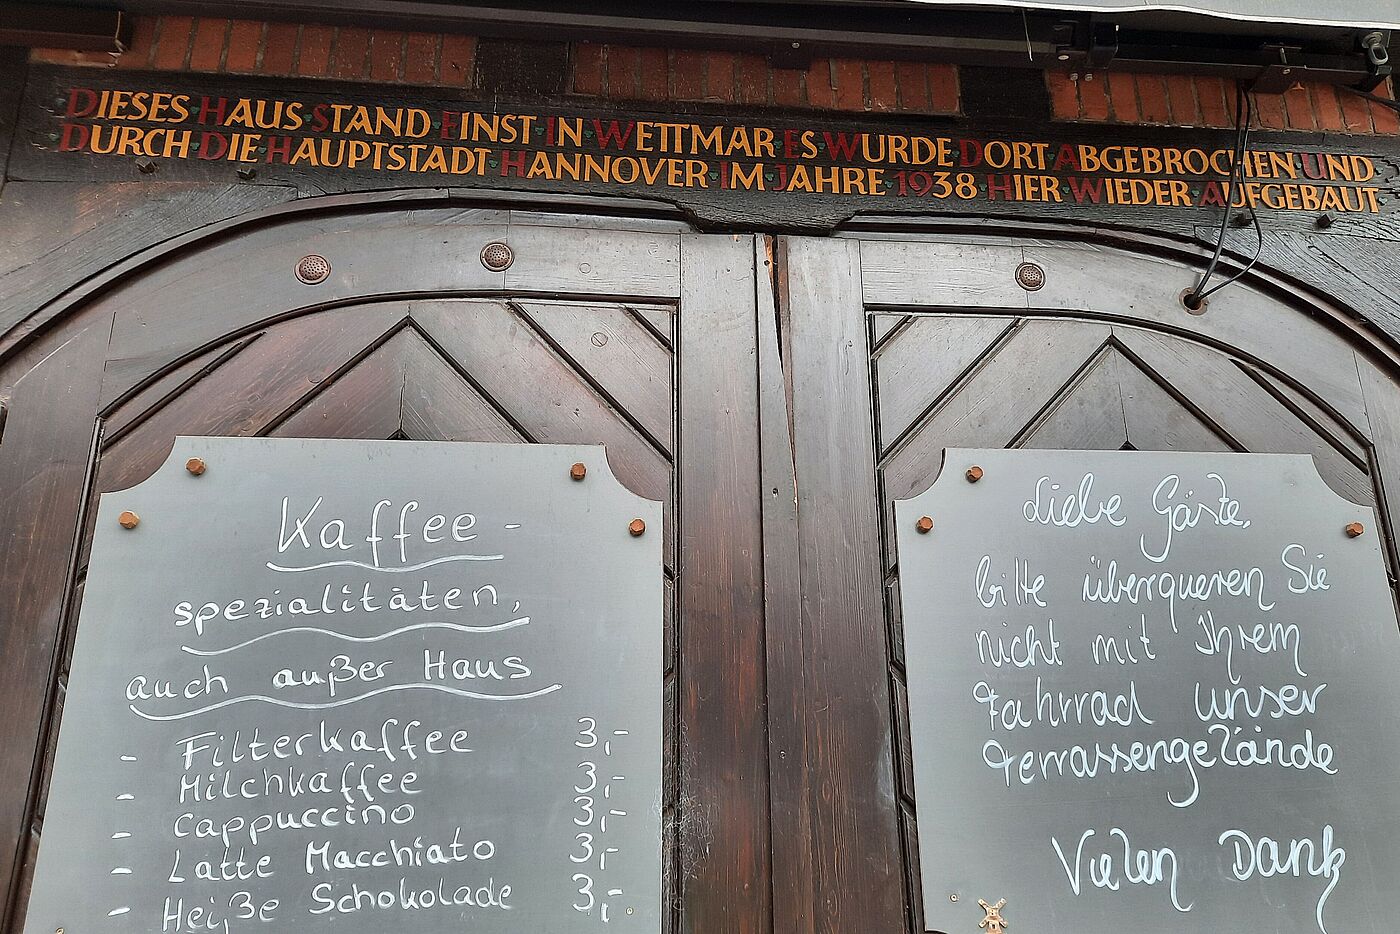 DIESES HAUS STAND EINST IN WETTMAR ES WURDE DORT ABGEBROCHEN UND
DURCH DIE HAUPTSTADT HANNOVER IM JAHRE 1938 HIER WIEDER AUFGEBAUT
Kaffee-
spezialitäten,
auch außer Haus
- Filterkaffee 3,-
- Milchkaffee 3,-
- Cappuccino 3,-
- Latte Macchiato 3,-
- Heiße Schokolade 3,-
Liebe Gäste,
bitte überqueren Sie
nicht mit Ihrem
Fahrrad unser
Terrassengelände
Vielen Dank